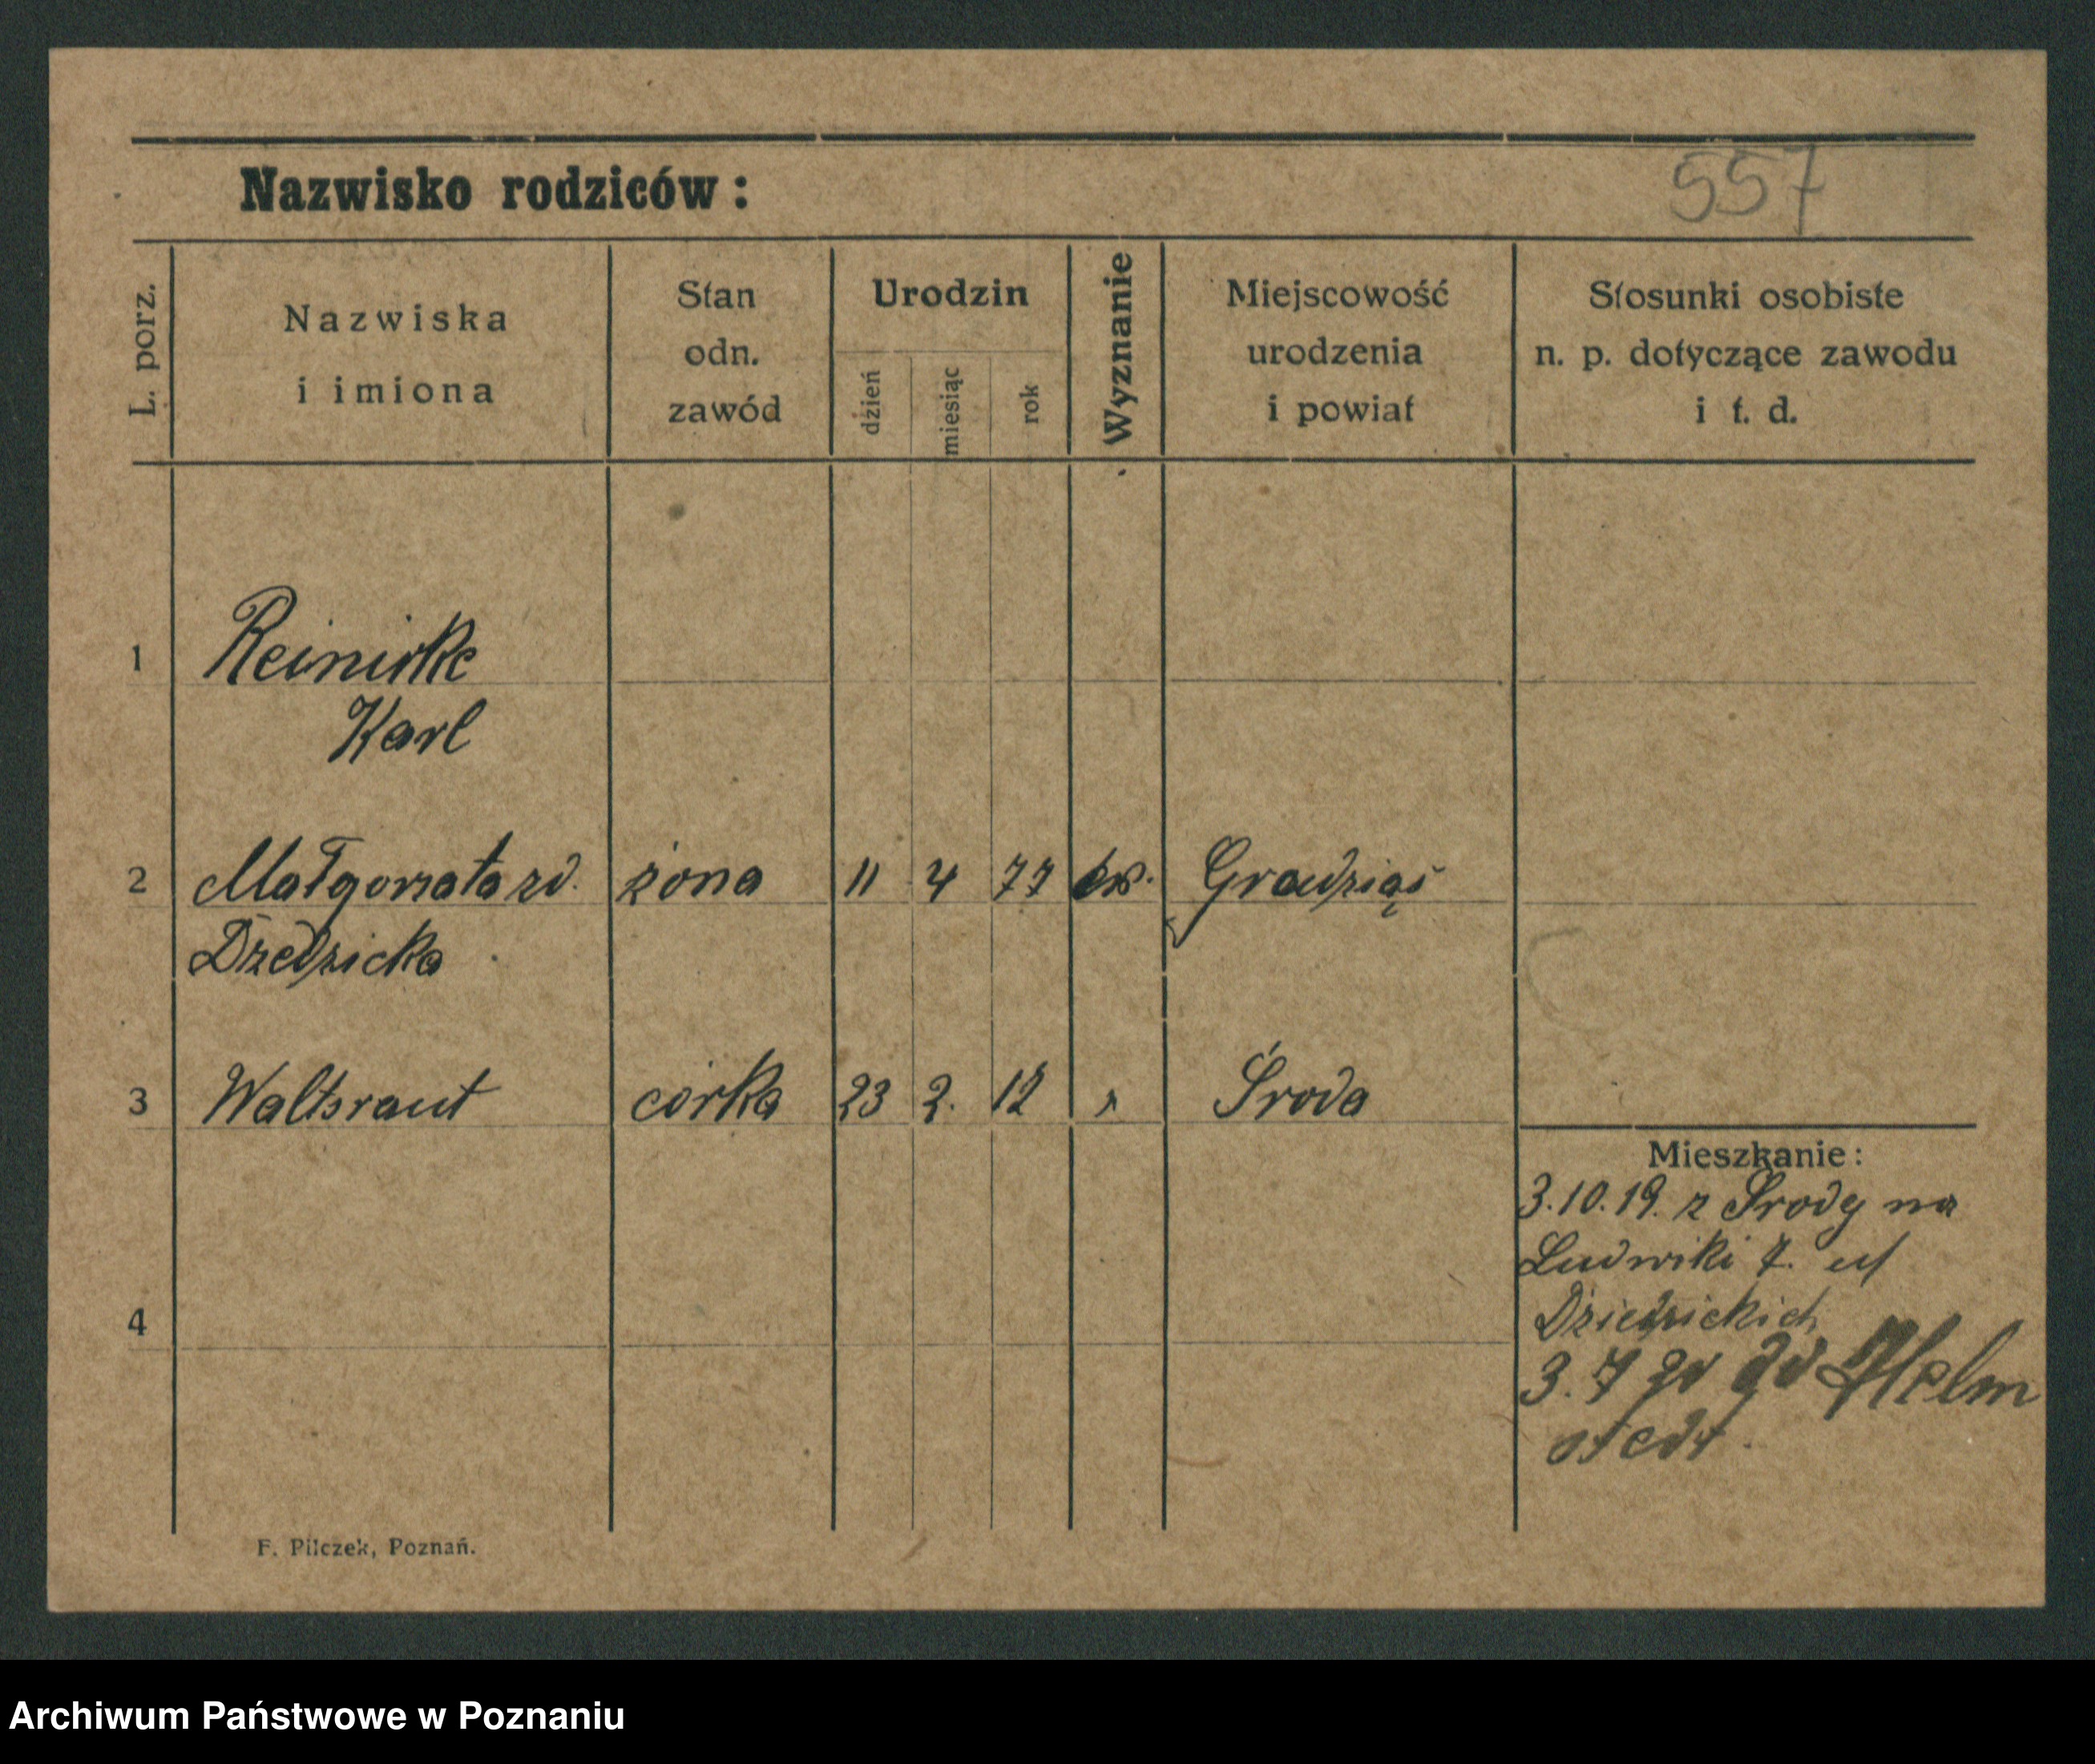 557
Nazwisko rodziców:
L. porz.
Nazwiska
i imiona
Stan
odn.
zawód
Urodzin
dzień
miesiąc
rok
Wyznanie
Miejscowość
urodzenia
i powiat
Stosunki osobiste
n. p. dotyczące zawodu
i t. d.
1 Reinicke
Karl
2 Małgorzata zd. żona 11 4 77 ew. Grudziąż
Dzedzicka
3 Waltraut córka 23 2. 12 " Środa
Mieszkanie:
3.10.19. z Środy na
Ludwiki 7. u/
Dziedzickich
4
3. 7 20 do Helm
stedt.
F. Pilczek, Poznań.
Archiwum Państwowe w Poznaniu